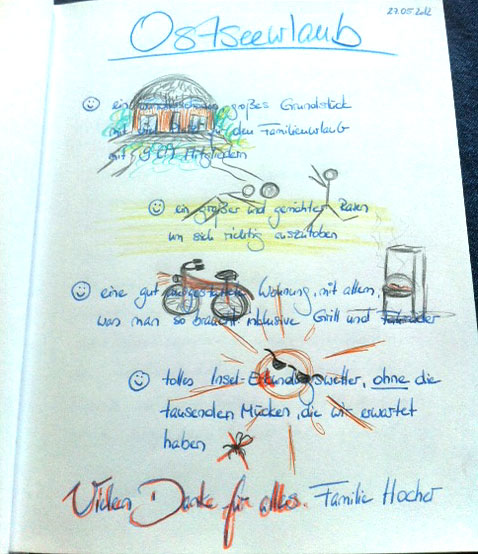 27.05.2012
Ostseeurlaub
ein wunderschönes großes Grundstück
mit viel Platz für den Familienurlaub
mit 9 (!) Mitgliedern
ein großer und gemähter Rasen
um sich richtig auszutoben
eine gut ausgestattete Wohnung, mit allem,
was man so braucht inklusive Grill und Fahrräder
tolles Insel-Erkundungswetter, ohne die
tausenden Mücken, die wir erwartet
haben
Vielen Dank für alles. Familie Hocher